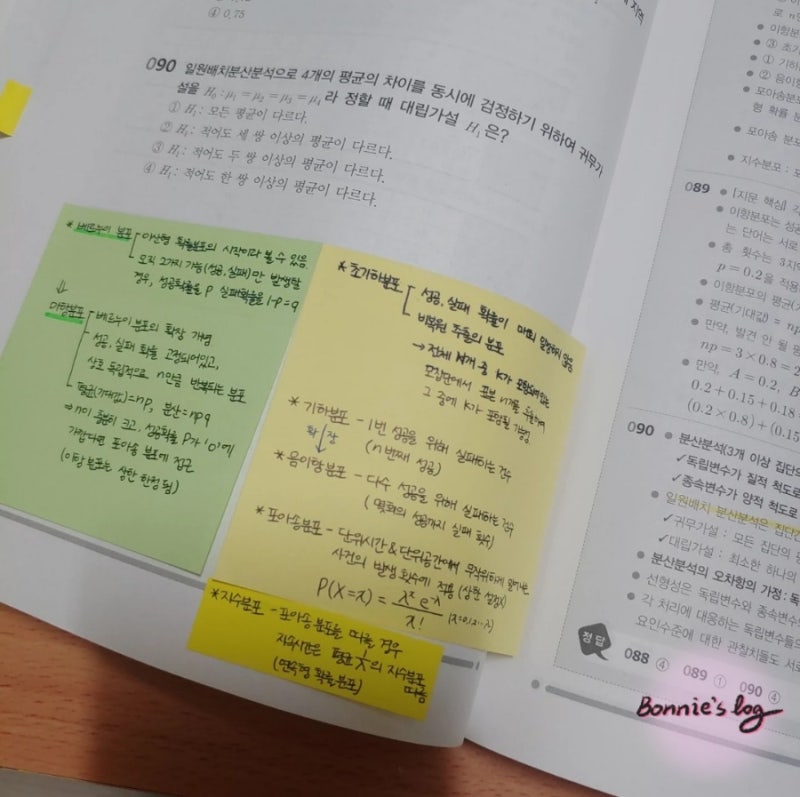 ④ 0.75
090 일원배치분산분석으로 4개의 평균의 차이를 동시에 검정하기 위하여 귀무가
설을 H₀ : μ₁ = μ₂ = μ₃ = μ₄ 라 정할 때 대립가설 H₁은?
① H₁ : 모든 평균이 다르다.
② H₁ : 적어도 세 쌍 이상의 평균이 다르다.
③ H₁ : 적어도 두 쌍 이상의 평균이 다르다.
④ H₁ : 적어도 한 쌍 이상의 평균이 다르다.
* 베르누이 분포 이산형 확률분포의 시작이라 볼 수 있음.
오직 2가지 가능(성공, 실패)만 발생할
경우, 성공확률을 P 실패확률을 1-P = q
↓
이항분포 베르누이 분포의 확장 개념
성공, 실패 확률 고정되어있고,
상호 독립적으로 n만큼 반복되는 분포
평균(기대값) = np, 분산 = npq
⇒ n이 충분히 크고, 성공확률 P가 '0'에
가깝다면 포아송 분포에 접근
(이항분포는 상한 한정 됨)
* 초기하분포 성공, 실패 확률이
비복원 추출의 분포
→ 전체 N개 중 K가 포함되어 있는
모집단에서 표본 n개를
그 중에 K가 포함될 가능성
* 기하분포 - 1번 성공을 위해 실패하는 건수
(n번째 성공)
확장
* 음이항분포 - 다수 성공을 위해 실패하는 건수
(몇회의 성공까지 실패 횟수)
* 포아송분포 - 단위시간 & 단위공간에서 무작위하게 일어나는
사건의 발생 횟수에 적용 (상한 설정X)
P(X=x) = λˣ e⁻λ / x!
* 지수분포 - 포아송 분포를 따를 경우
지속시간은 평균 1/λ의 지수분포
(연속형 확률분포) 따름
이항분포
③ 초기
① 기하
② 음이항
포아송분포
형 확률 분
포아송 분포
지수분포 : 포
089
[지문 핵심] 각
이항분포는 성공
는 단어는 서로
총 횟수는 3지
p = 0.2을 적용
이항분포의 평균(기
평균(기대값) = np
만약, 발견 안 될 평
np = 3 × 0.8 = 2
만약, A = 0.2, B
0.2 + 0.15 + 0.18
(0.2 × 0.8) + (0.15
090
분산분석(3개 이상 집단의
✓독립변수가 질적 척도로
✓종속변수가 양적 척도로
일원배치 분산분석은 집단간
✓귀무가설 : 모든 집단의
✓대립가설 : 최소한 하나의
분산분석의 오차항의 가정 : 독
선형성은 독립변수와 종속변수
각 처리에 대응하는 독립변수들의
요인수준에 대한 관찰치들도 서로
정답
088 ④ 089 ① 090 ④
Bonnie's log